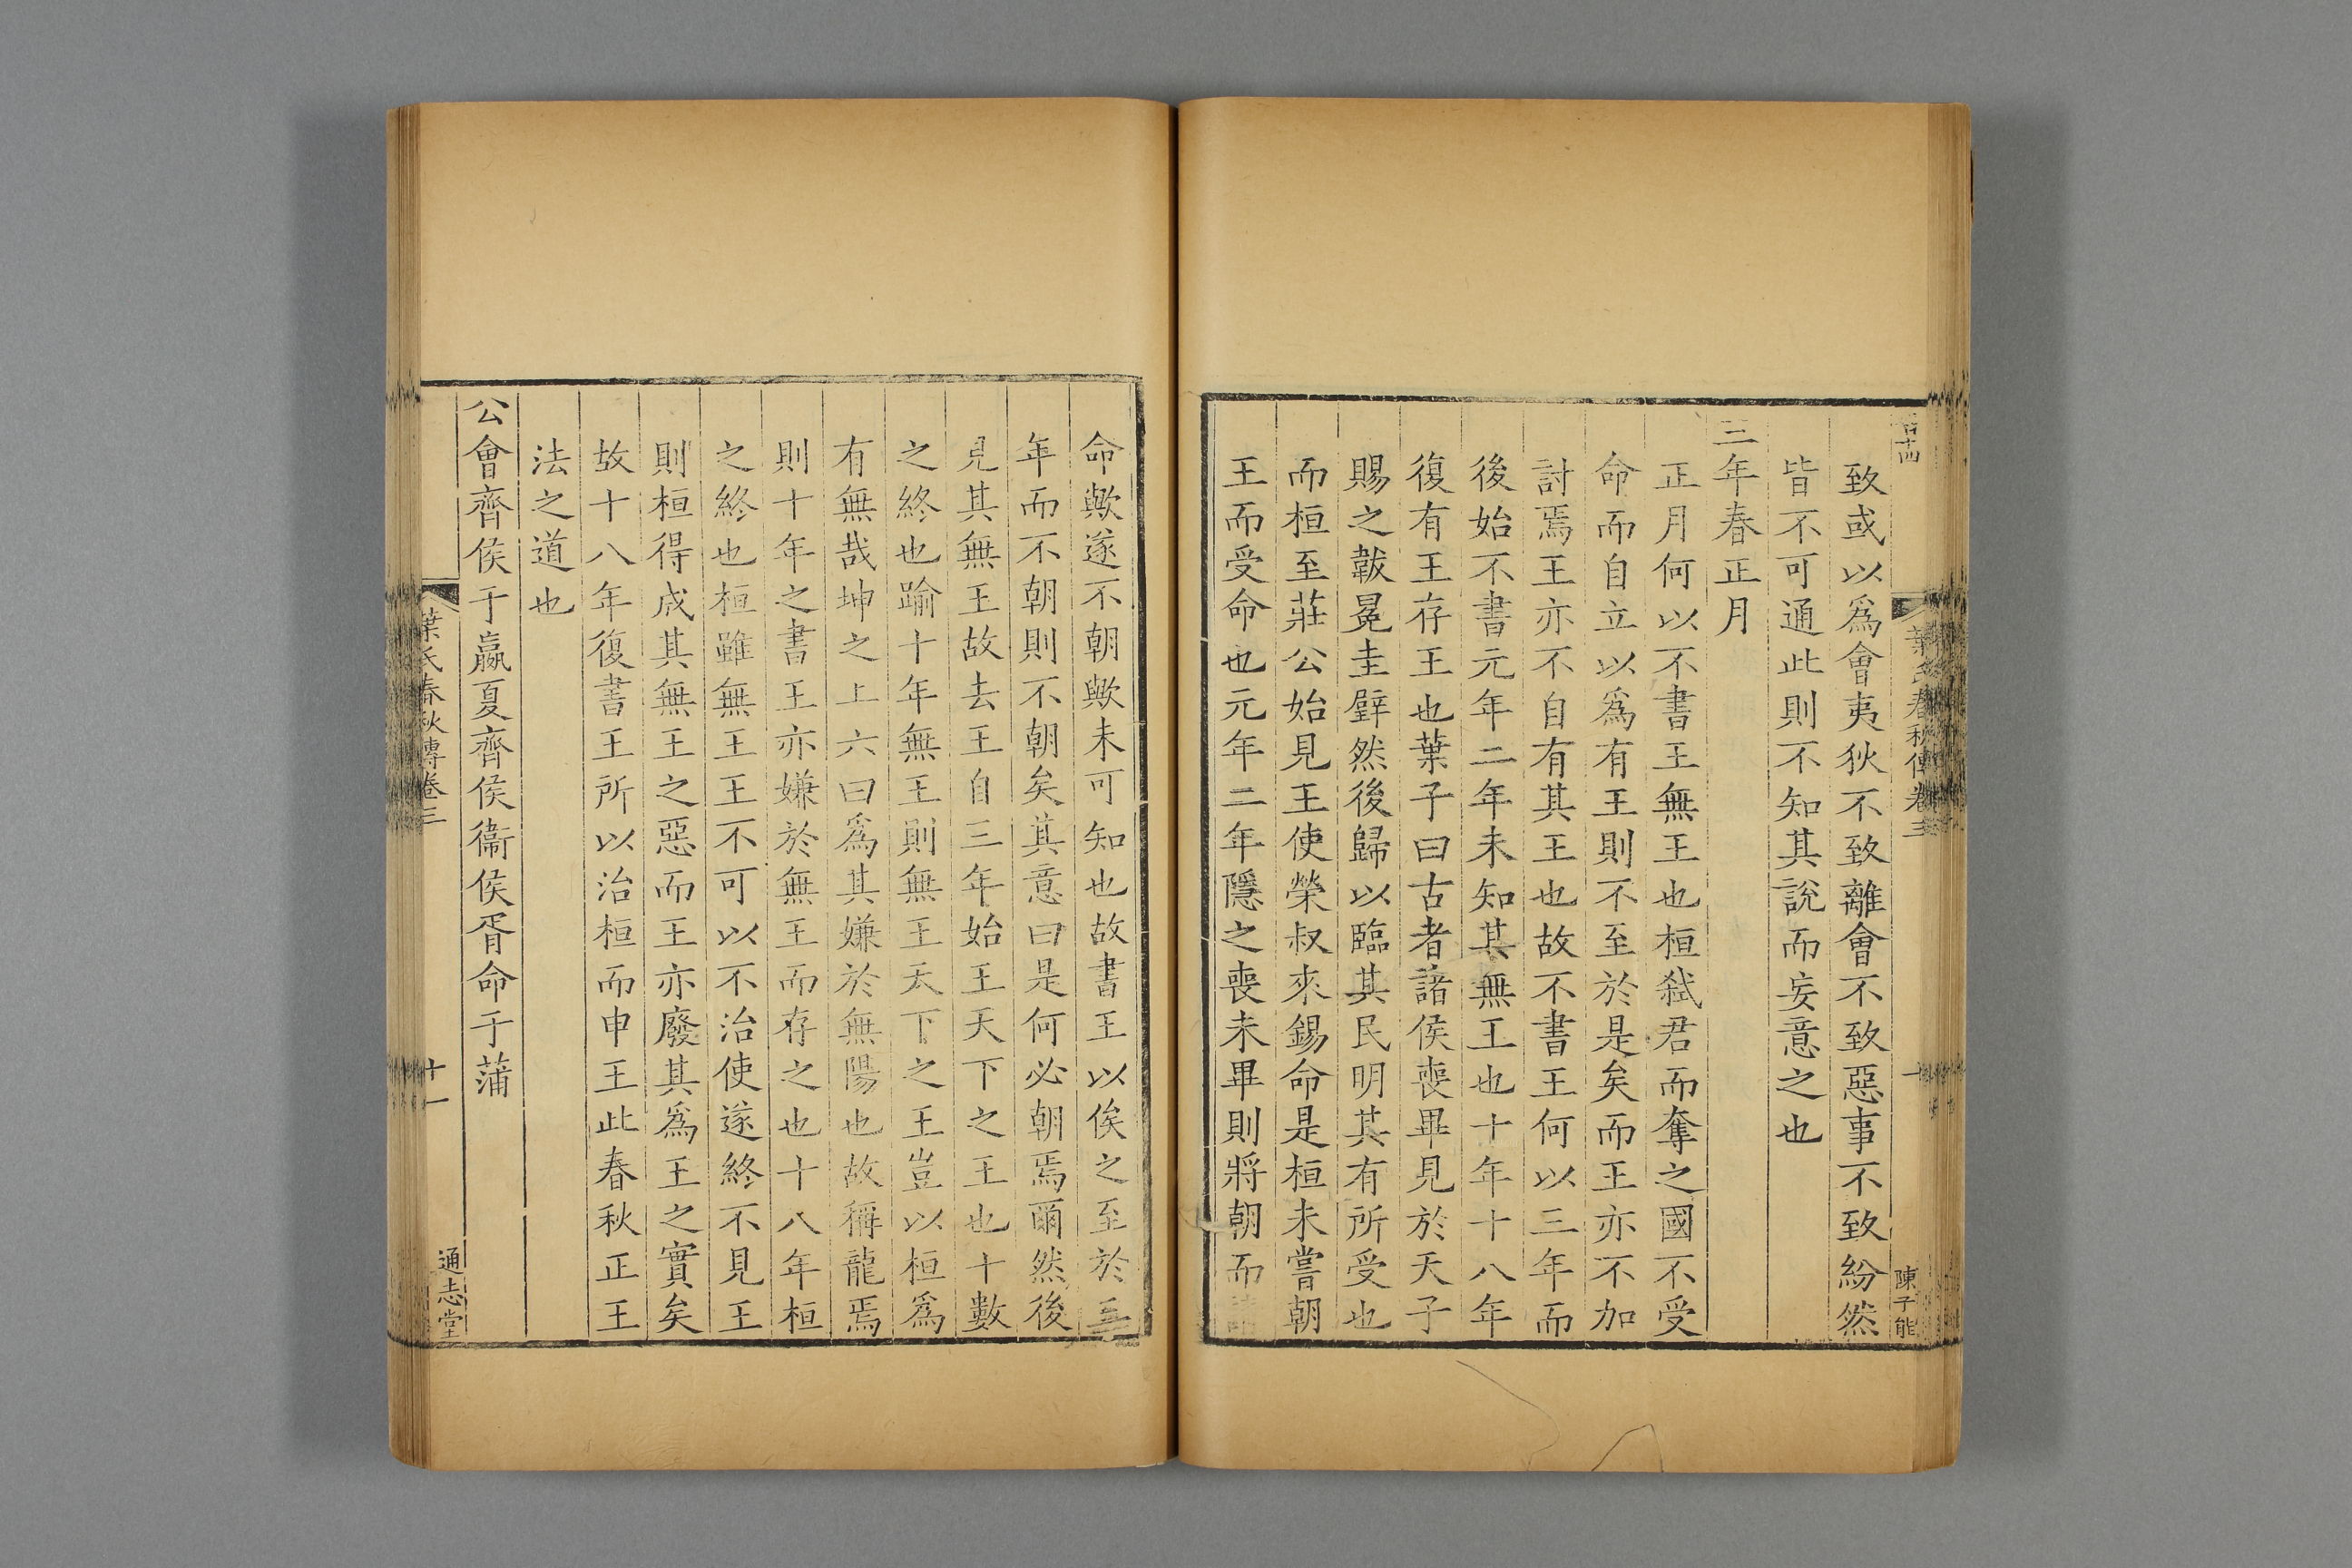 葉氏春秋傳卷三
陳子能
致或以為會夷狄不致離會不致惡事不致紛然
皆不可通此則不知其說而妄意之也
三年春正月
正月何以不書王無王也桓弒君而奪之國不受
命而自立以為有王則不至於是矣而王亦不加
討焉王亦不自有其王也故不書王何以三年而
後始不書元年二年未知其無王也十年十八年
復有王存王也葉子曰古者諸侯喪畢見於天子
賜之韍冕圭璧然後歸以臨其民明其有所受也
而桓至莊公始見王使榮叔來錫命是桓未嘗朝
王而受命也元年二年隱之喪未畢則將朝而
命歟遂不朝歟未可知也故書王以俟之至於三
年而不朝則不朝矣其意曰是何必朝焉爾然後
見其無王故去王自三年始王天下之王也十數
之終也踰十年無王則無王天下之王豈以桓為
有無哉坤之上六曰為其嫌於無陽也故稱龍焉
則十年之書王亦嫌於無王而存之也十八年桓
之終也桓雖無王王不可以不治使遂終不見王
則桓得成其無王之惡而王亦廢其為王之實矣
故十八年復書王所以治桓而申王此春秋正王
法之道也
公會齊侯于嬴夏齊侯衞侯胥命于蒲
葉氏春秋傳卷三
十一
通志堂